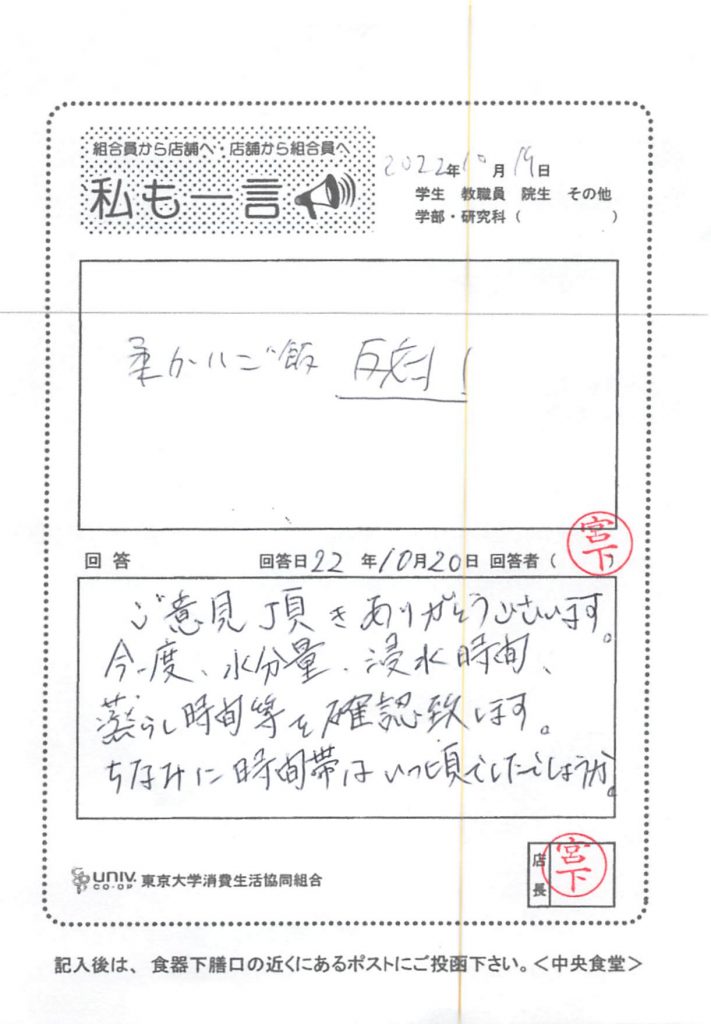 組合員から店舗へ・店舗から組合員へ
私も一言
2022年10月19日
学生 教職員 院生 その他
学部・研究科（ ）
柔かいご飯 反対！
回答 回答日22年10月20日 回答者（宮下）
ご意見頂きありがとうございます。
今一度、水分量、浸水時間、
蒸らし時間等を確認致します。
ちなみに時間帯はいつ頃でしたでしょうか。
UNIV. CO-OP 東京大学消費生活協同組合
店長 宮下
記入後は、食器下膳口の近くにあるポストにご投函下さい。＜中央食堂＞